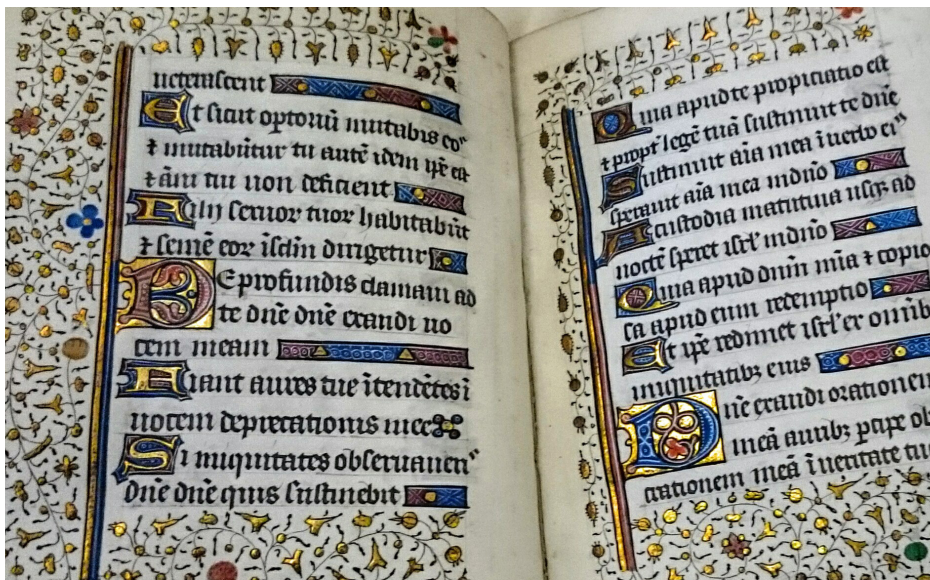 ueterascent
Et sicut optoriũ mutabis eo"
⁊ mutabũtur tu autẽ idem ip̃e es
⁊ ãni tui non deficient
Filij seruor tuor habitabũt
⁊ semẽ eor ĩsclm̃ dirigetur
De profundis clamaui ad
te dñe dñe exaudi uo
cem meam
Fiant aures tue ĩtendẽtes ĩ
uocem deprecationis mee
Si iniquitates obseruaueri"
dñe dñe quis sustinebit
Quia apud te propiciatio est
⁊ propt' legẽ tuã sustinui te dñe
Sustinuit aĩa mea ĩ uerbo ei"
sperauit aĩa mea in dño
A custodia matutina usqꝫ ad
noctẽ speret isrl' in dño
Quia apud dñm mĩa ⁊ copio
sa apud eum redemptio
Et ip̃e redimet isrl' ex omĩb
iniquitatibꝫ eius
Dñe exaudi orationem
meã auribꝫ ꝑcipe ob
crationem meã ĩ ueritate tu